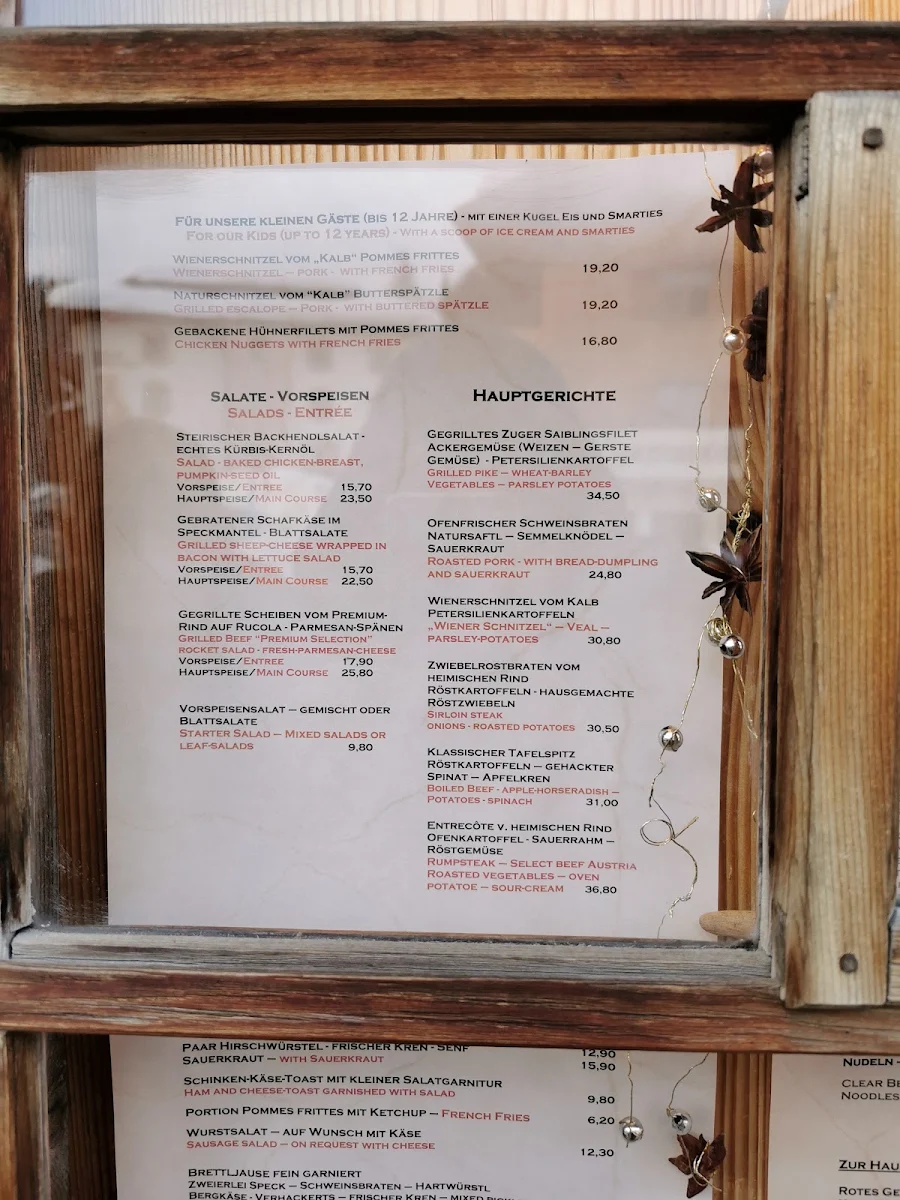 Für unsere kleinen Gäste (bis 12 Jahre) - mit einer Kugel Eis und Smarties
For our Kids (up to 12 years) - with a scoop of ice cream and smarties
Wienerschnitzel vom „Kalb“ Pommes frittes
Wienerschnitzel – pork - with french fries 19,20
Naturschnitzel vom “Kalb” Butterspätzle
Grilled escalope – Pork - with buttered spätzle 19,20
Gebackene Hühnerfilets mit Pommes frittes
Chicken Nuggets with french fries 16,80
Salate - Vorspeisen
Salads - Entrée
Steirischer Backhendlsalat -
echtes Kürbis-Kernöl
Salad - baked chicken-breast,
pumpkin-seed oil
Vorspeise/Entree 15,70
Hauptspeise/Main Course 23,50
Gebratener Schafkäse im
Speckmantel - Blattsalate
Grilled sheep-cheese wrapped in
bacon with lettuce salad
Vorspeise/Entree 15,70
Hauptspeise/Main Course 22,50
Gegrillte Scheiben vom Premium-
Rind auf Rucola - Parmesan-Spänen
Grilled Beef “Premium Selection”
rocket salad - fresh-parmesan-cheese
Vorspeise/Entree 17,90
Hauptspeise/Main Course 25,80
Vorspeisensalat – gemischt oder
Blattsalate
Starter Salad – Mixed salads or
leaf-salads 9,80
Hauptgerichte
Gegrilltes Zuger Saiblingsfilet
Ackergemüse (Weizen – Gerste
Gemüse) - Petersilienkartoffel
Grilled pike – wheat-barley
Vegetables – parsley potatoes
34,50
Ofenfrischer Schweinsbraten
Natursaftl – Semmelknödel –
Sauerkraut
Roasted pork - with bread-dumpling
and sauerkraut 24,80
Wienerschnitzel vom Kalb
Petersilienkartoffeln
„Wiener Schnitzel“ – Veal –
parsley-potatoes 30,80
Zwiebelrostbraten vom
heimischen Rind
Röstkartoffeln - hausgemachte
Röstzwiebeln
Sirloin steak
onions - roasted potatoes 30,50
Klassischer Tafelspitz
Röstkartoffeln – gehackter
Spinat – Apfelkren
Boiled Beef - apple-horseradish –
Potatoes - spinach 31,00
Entrecôte v. heimischen Rind
Ofenkartoffel - Sauerrahm –
Röstgemüse
Rumpsteak – Select beef Austria
Roasted vegetables – oven
potatoe – sour-cream 36,80
Paar Hirschwürstel - frischer Kren - Senf 12,90
Sauerkraut – with Sauerkraut 15,90
Schinken-Käse-Toast mit kleiner Salatgarnitur
Ham and cheese-toast garnished with salad 9,80
Portion Pommes frittes mit Ketchup – French Fries 6,20
Wurstsalat – auf Wunsch mit Käse
Sausage salad – on request with cheese 12,30
Brettljause fein garniert
Zweierlei Speck – Schweinsbraten – Hartwürstl
Bergkäse - Verhackerts – frischer Kren – mixed
Nudeln -
Clear Be
Noodles
Zur Hau
Rotes Ge